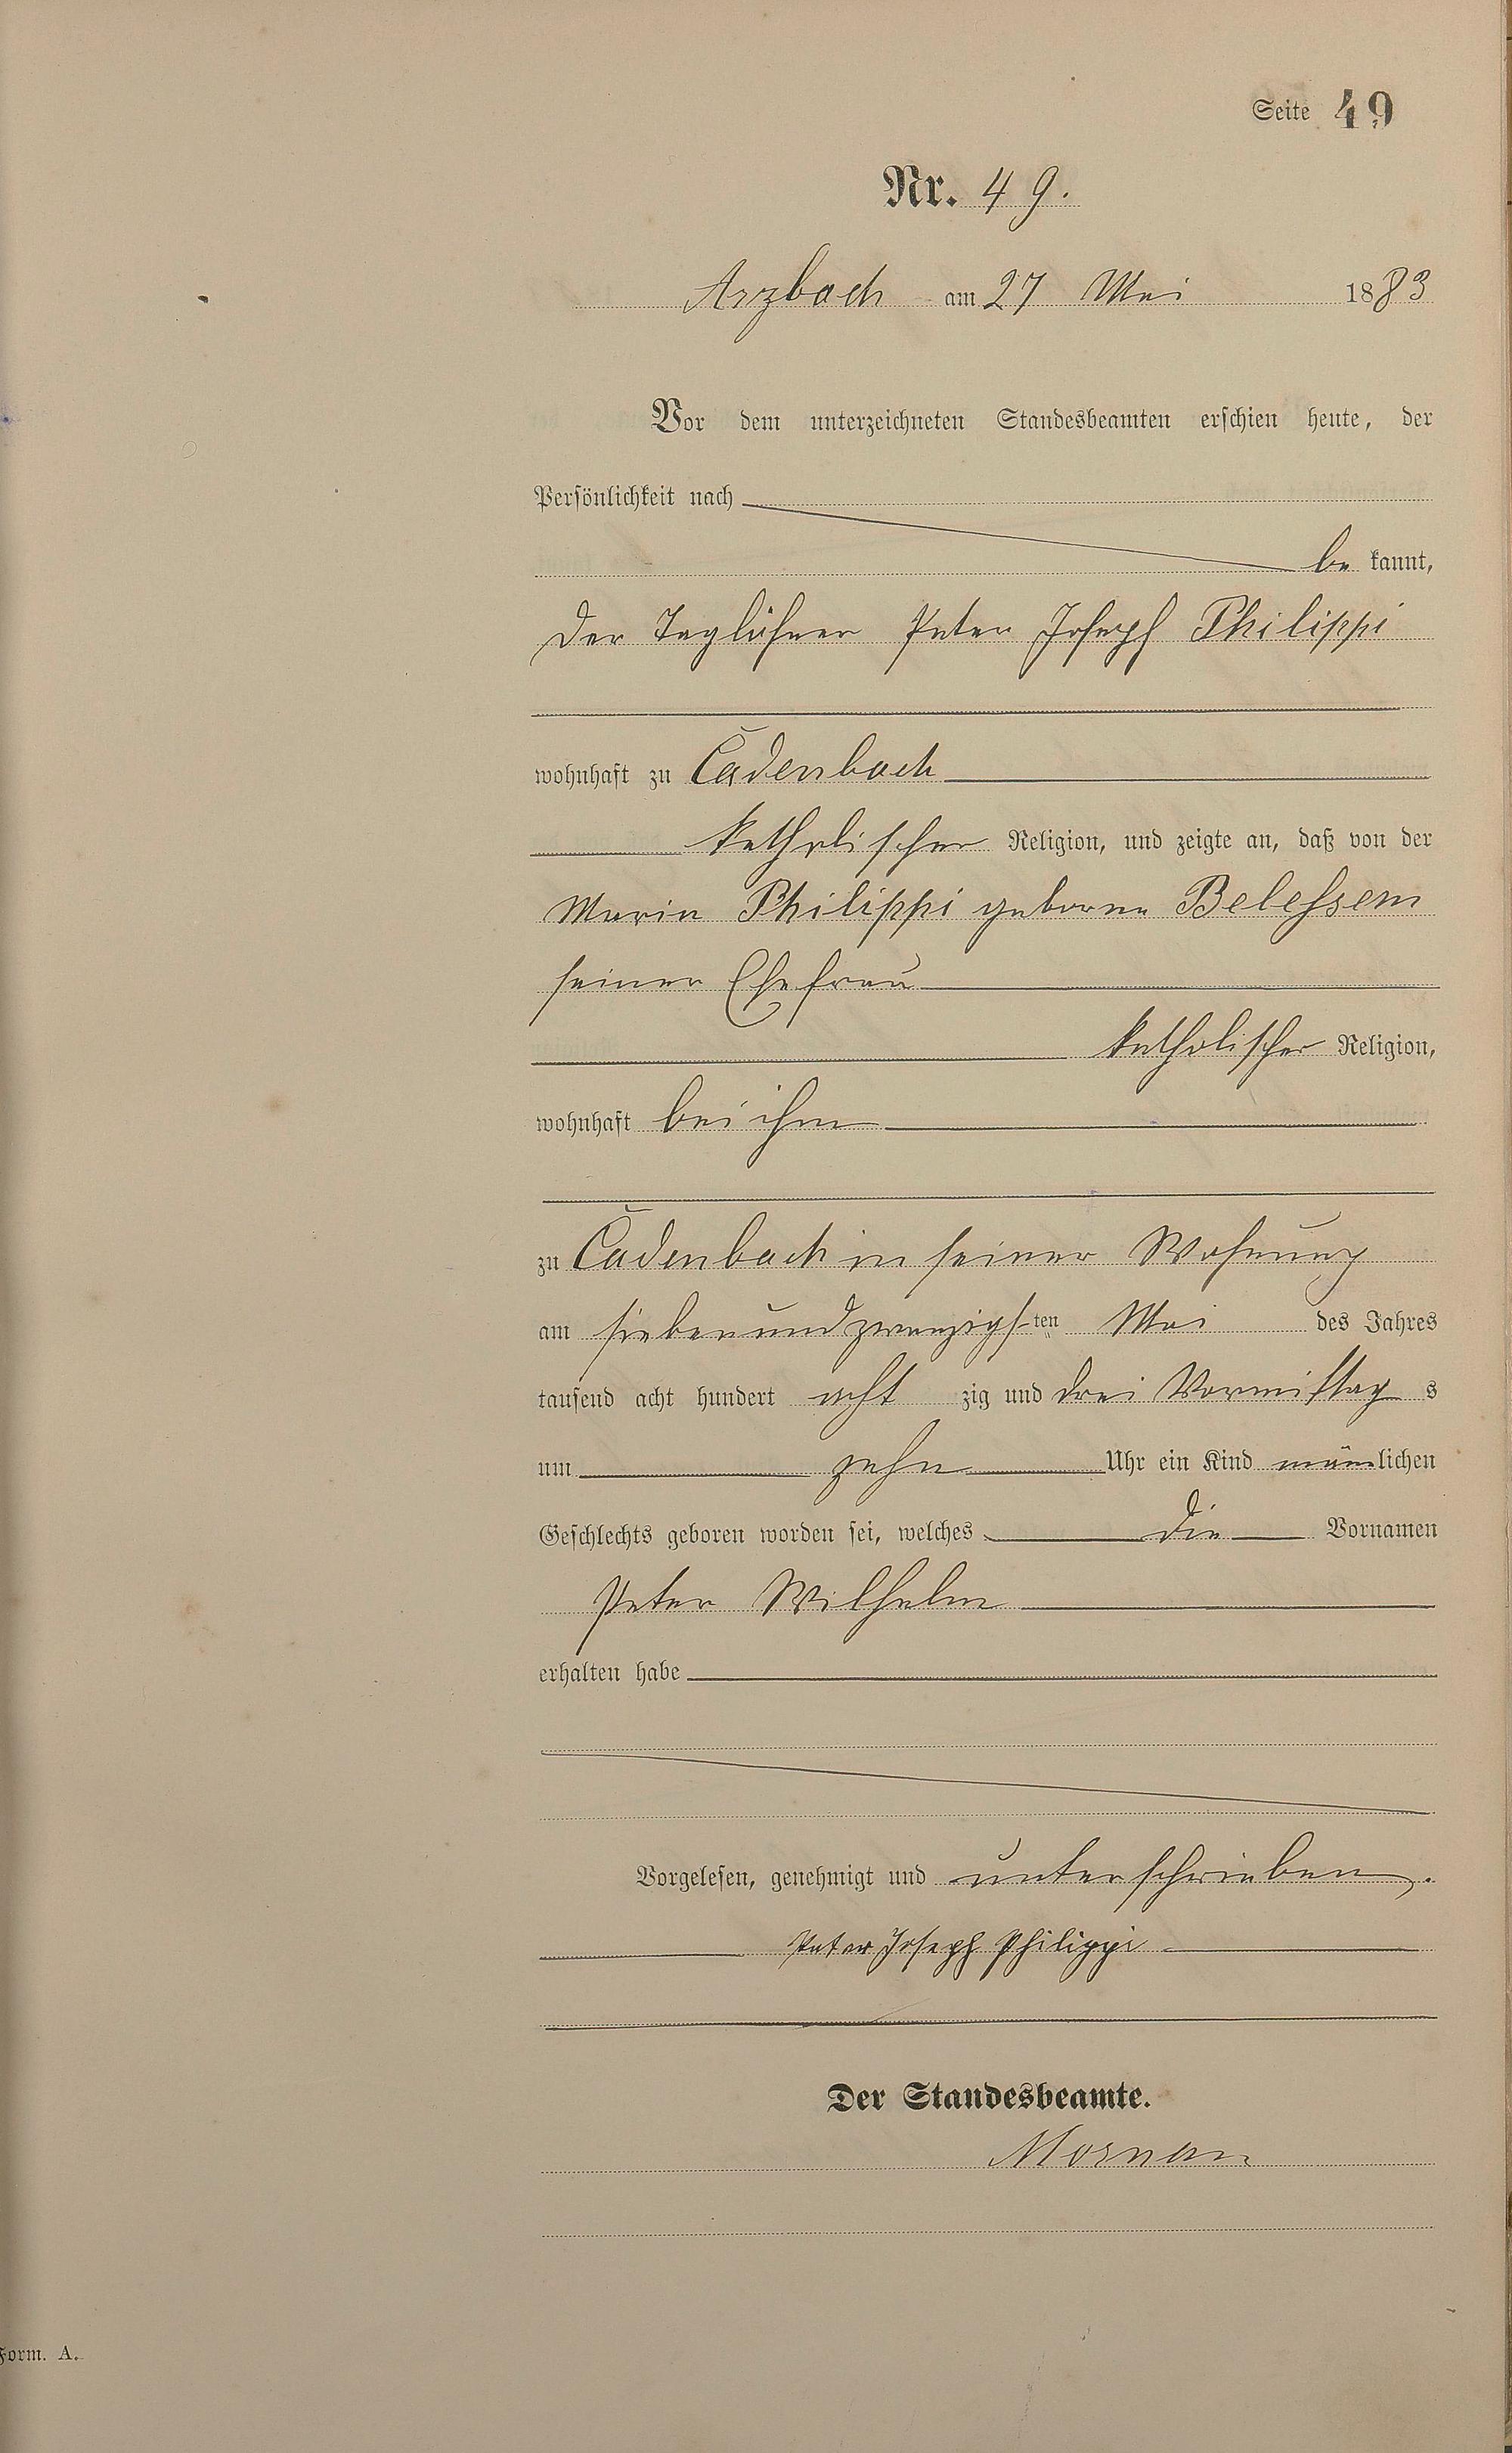 Seite 49
Nr. 49.
Arzbach am 27 Mai 1883
Vor dem unterzeichneten Standesbeamten erschien heute, der
Persönlichkeit nach
be kannt,
der Taglöhner Peter Joseph Philippi
wohnhaft zu Cadenbach
katholischer Religion, und zeigte an, daß von der
Maria Philippi geborne Belessem
seiner Ehefrau
katholischer Religion,
wohnhaft bei ihm
zu Cadenbach in seiner Wohnung
am siebenundzwanzigsten Mai des Jahres
tausend acht hundert acht zig und drei Vormittag s
um zehn Uhr ein Kind mänlichen
Geschlechts geboren worden sei, welches die Vornamen
Peter Wilhelm
erhalten habe
Vorgelesen, genehmigt und unterschrieben.
Peter Joseph Philippi
Der Standesbeamte.
Form. A.